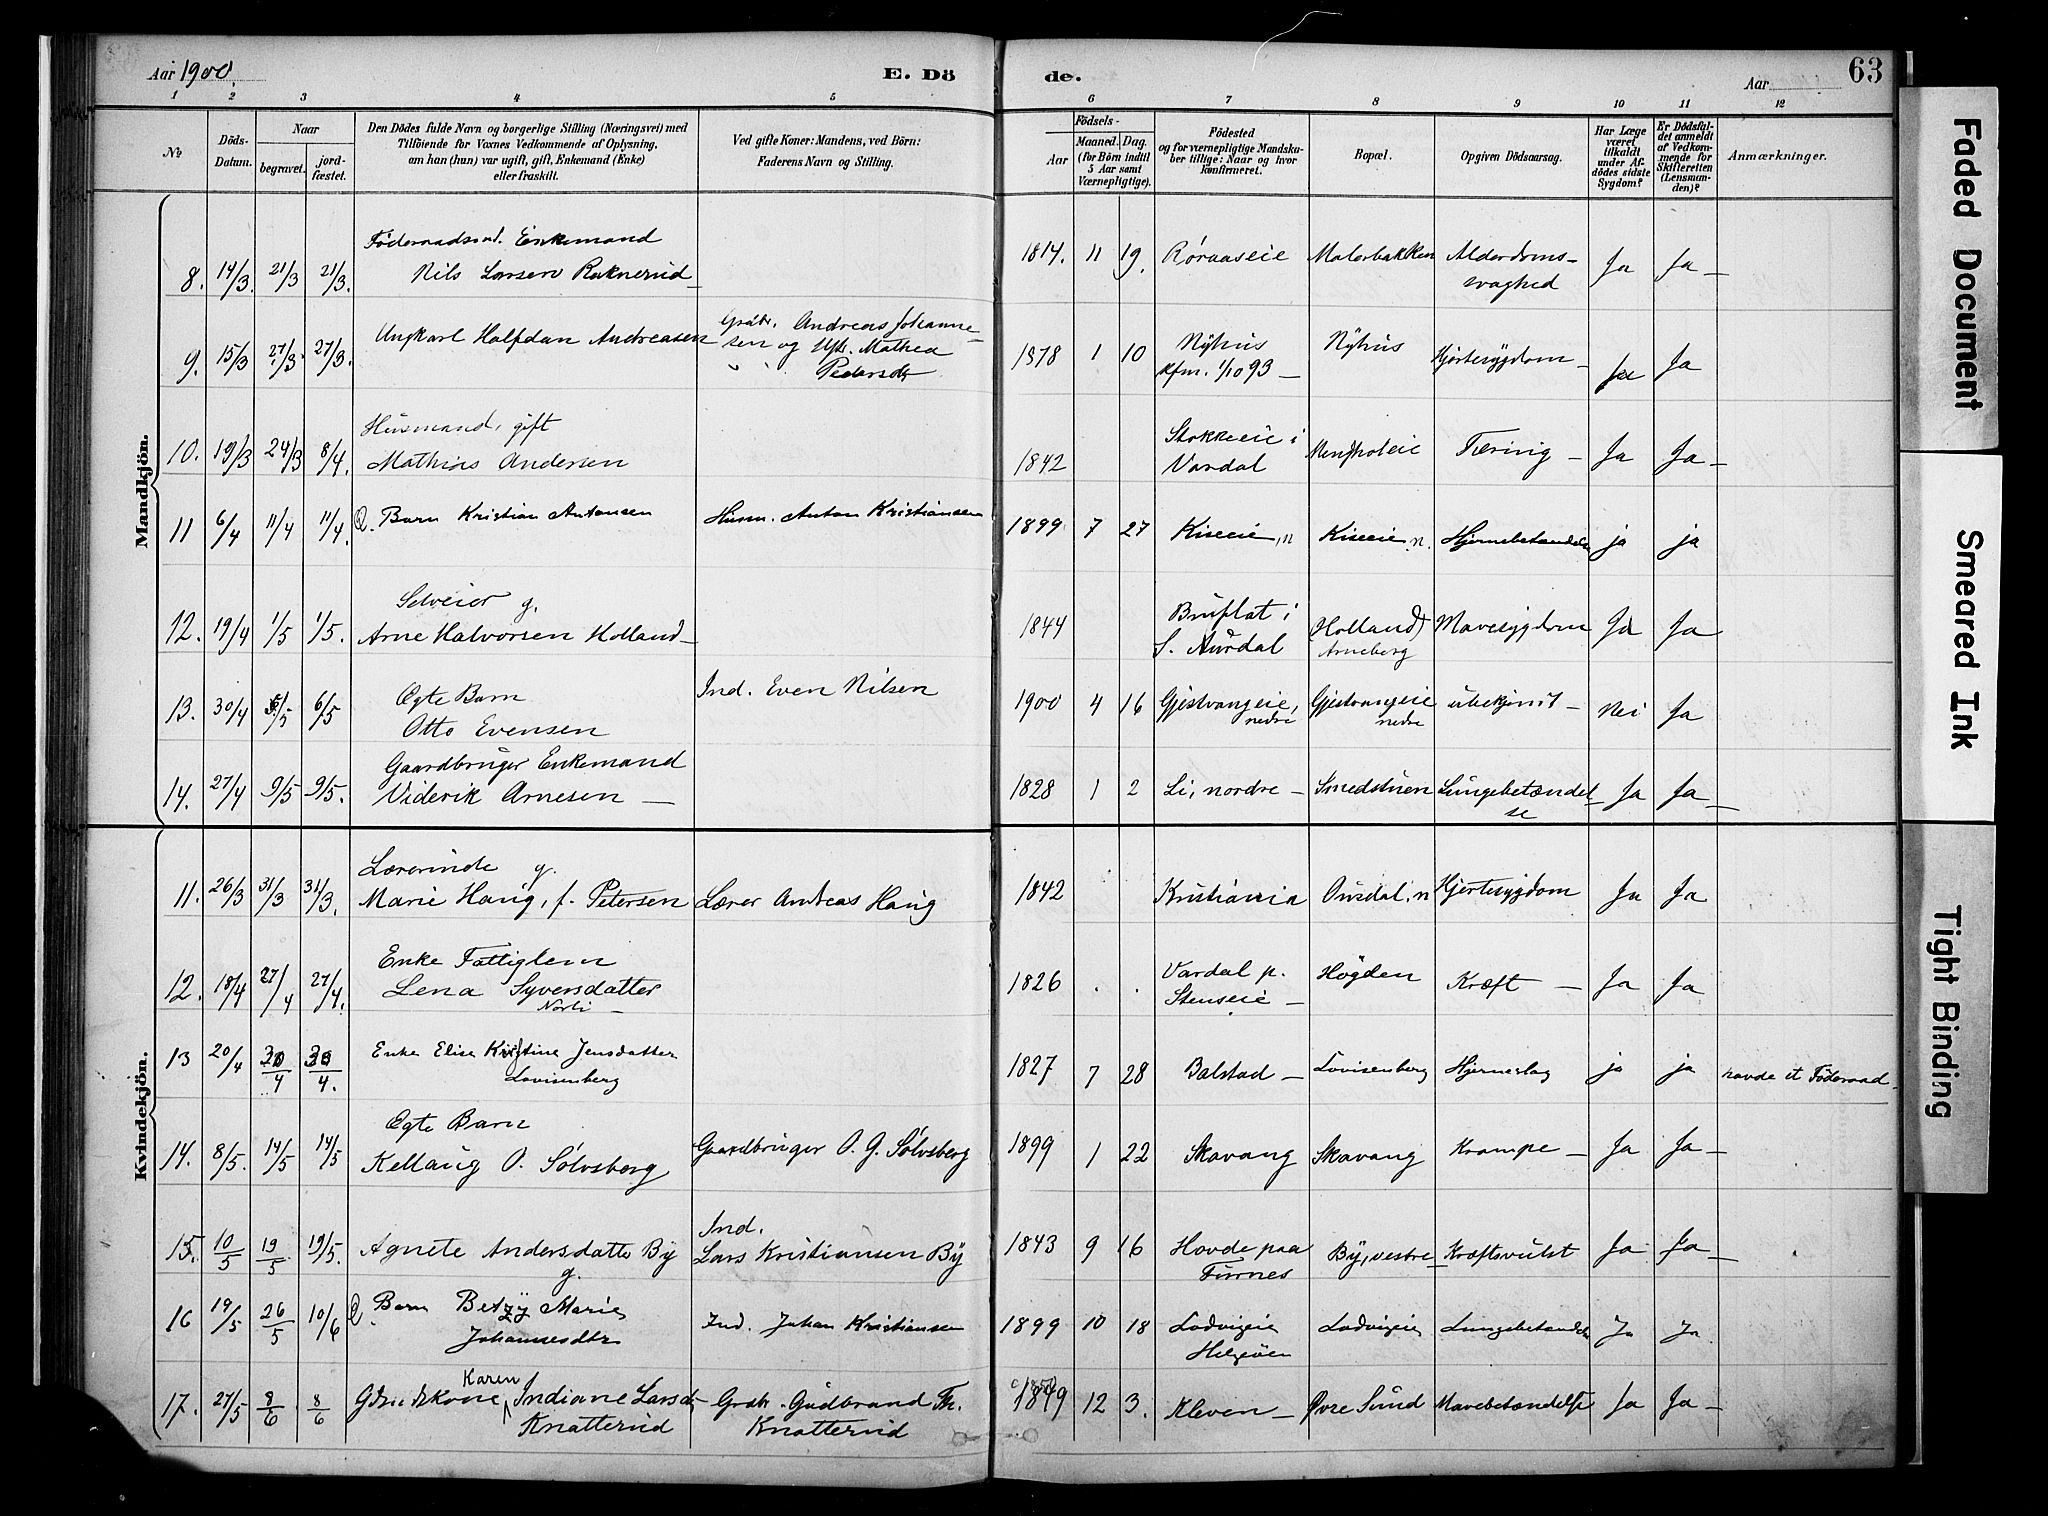 Aar 1900.
E. Dö
de.
Aar
63
1 2 3 4 5 6 7 8 9 10 11 12
№
Döds-Datum.
Naar
begravet.
jord-fæstet.
Den Dödes fulde Navn og borgerlige Stilling (Næringsvei) med
Tilföiende for Voxnes Vedkommende af Oplysning,
om han (hun) var ugift, gift, Enkemand (Enke)
eller fraskilt.
Ved gifte Koner: Mandens, ved Börn:
Faderens Navn og Stilling.
Födsels-
Aar
Maaned. Dag.
(for Börn indtil
5 Aar samt
Værnepligtige).
Födested
og for værnepligtige Mandska-
ber tillige: Naar og hvor
konfirmeret.
Bopæl.
Opgiven Dödsaarsag.
Har Læge
været
tilkaldt
under Af-
dödes sidste
Sygdom?
Er Dödsfal-
det anmeldt
af Vedkom-
mende for
Skifteretten
(Lensman-
den)?
Anmærkninger.
Mandkjön.
Föderaadsm. Enkemand
8. 14/3. 21/3 21/3. Nils Larsen Raknerud 1814. 11 19. Røraaseie Malerbakken Alderdoms-
svaghed Ja Ja
9. 15/3 27/3 27/3. Ungkarl Halfdan Andreasen Grdbr. Andreas Johanne-
sen og Hst. Mathea
Pedersdt 1878 1 10 Nÿhus
Kfm. 1/10 93 Nÿhus Hjertesygdom Ja Ja
Husmand, gift
10. 19/3 24/3 8/4. Mathias Andersen 1842 Stokkeeie i
Vardal Tæring Ja Ja
11 6/4 11/4 11/4. Barn Kristian Antonsen Husm. Anton Kristiansen 1899 7 27 Kiseeie, n Kiseeie n. Hjernebetændelse ja ja
Selveier g.
12. 19/4 1/5 1/5. Arne Halvorsen Holland 1844 Bruflat i
S. Aurdal (Holland)
Arneberg Mavesygdom Ja Ja
Ægte Barn
13. 30/4 6/5 6/5 Otto Evensen Ind. Even Nilsen 1900 4 16 Gjestvangeie,
nedre Gjestvangeie
nedre ubekjent Nei Ja
Gaardbruger Enkemand
14. 27/4 9/5 9/5. Viderik Arnesen 1828 1 2 Li, nordre Smedstuen Lungebetændel-
se Ja Ja
Kvindekjön.
Lærerinde g.
11. 26/3 31/3 31/3. Marie Haug, f. Petersen Lærer Andreas Haug 1842 Kristiania Onsdal, n Hjertesygdom Ja Ja
Enke Fattiglem
12. 18/4 27/4 27/4. Lena Syversdatter
Norli 1826 Vardal p.
Stenseie Högden Kræft Ja Ja
13 20/4 30/4 30/4. Enke Elise Kristine Jensdatter
Lovisenberg 1827 7 28 Balstad Lovisenberg Hjerneslag ja ja havde et Föderaad
Ægte Barn
14. 8/5. 14/5 14/5 Kellaug O. Sølvsberg Gaardbruger O. G. Sølvsberg 1899 1 22 Skavang Skavang Krampe Ja Ja
15. 10/5 19/5 19/5. Agnete Andersdatter Bÿ
g. Ind.
Lars Kristiansen Bÿ 1843 9 16 Hovde paa
Furnes Bÿ, vestre Kræftsvulst Ja Ja
16 19/5 26/5 10/6 Barn Betzÿ Marie
Johannesdtr Ind. Johan Kristiansen 1899 10 18 Lodvigeie
Helgøen Lodvigeie Lungebetændelse Ja Ja
17. 27/5 8/6 8/6 Karen Indiane Larsd.
Knatterud Grdbr. Gudbrand Th.
Knatterud 1849 12 3. Kleven Øvre Sund Mavebetændelse Ja Ja
Faded Document
Smeared Ink
Tight Binding